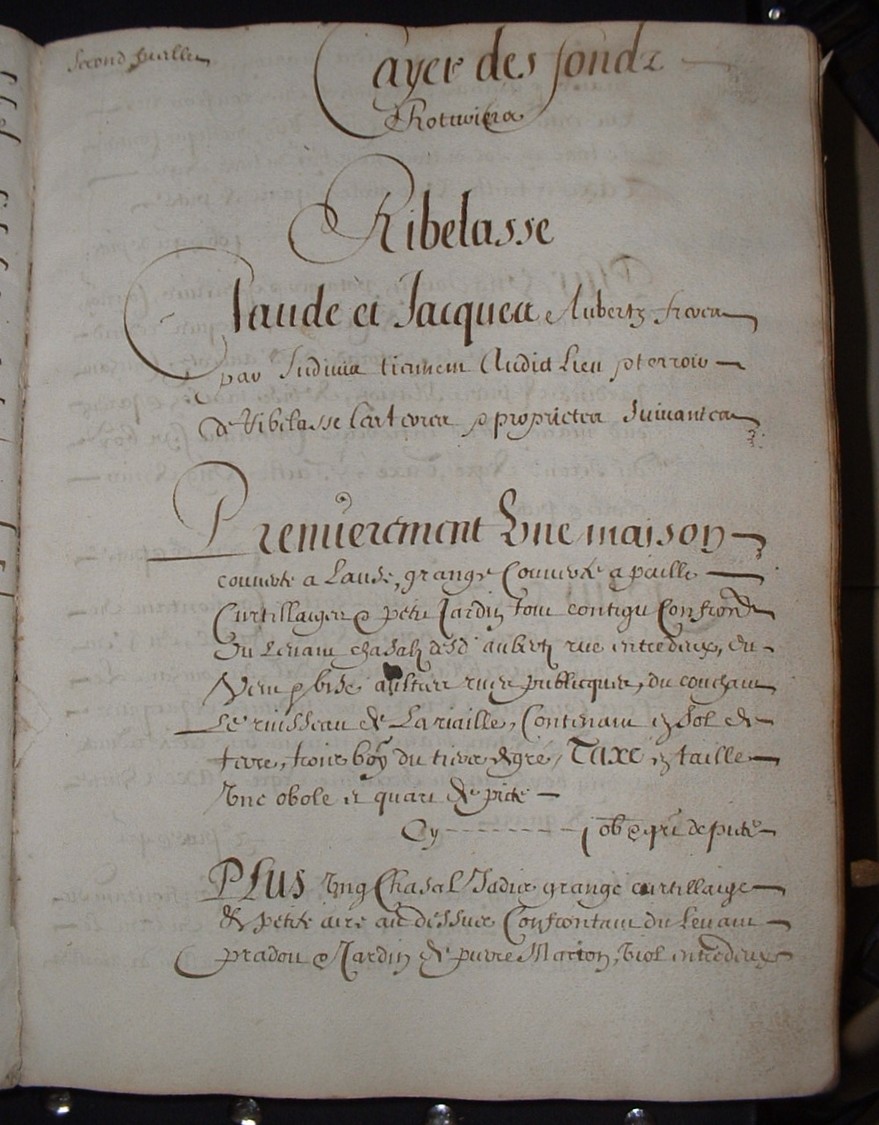 Second fueillet
Cayer des fondz
Roturiers
Ribelasse
Claude et Jacques Aubertz freres
par Indivis tiennent Audict Lieu et terroir
de Ribelasse Cart eores proprietes Suivantes
Premierement Une maison
couverte a Lauze, grange Couverte a paille
Curtillaiges & petit Jardin tout contigu Confronte
Du Levant chasalz desd' aubertz rue entredeux, du
Vent & bise aultres rues publicques, du couchant
Le ruisseau de Lariaille, Contenant en Sol de
terre, trois boy du tiers degre, TAXE en taille
Une obole et quart de pite
Cy - - - - - - - - - j ob & qrt de pite
PLUS Ung Chasal Jadis grange curtillaige
& petite aire au dessus Confrontant du Levant
pradou & Jardin de pierre Marcon, viol entredeux